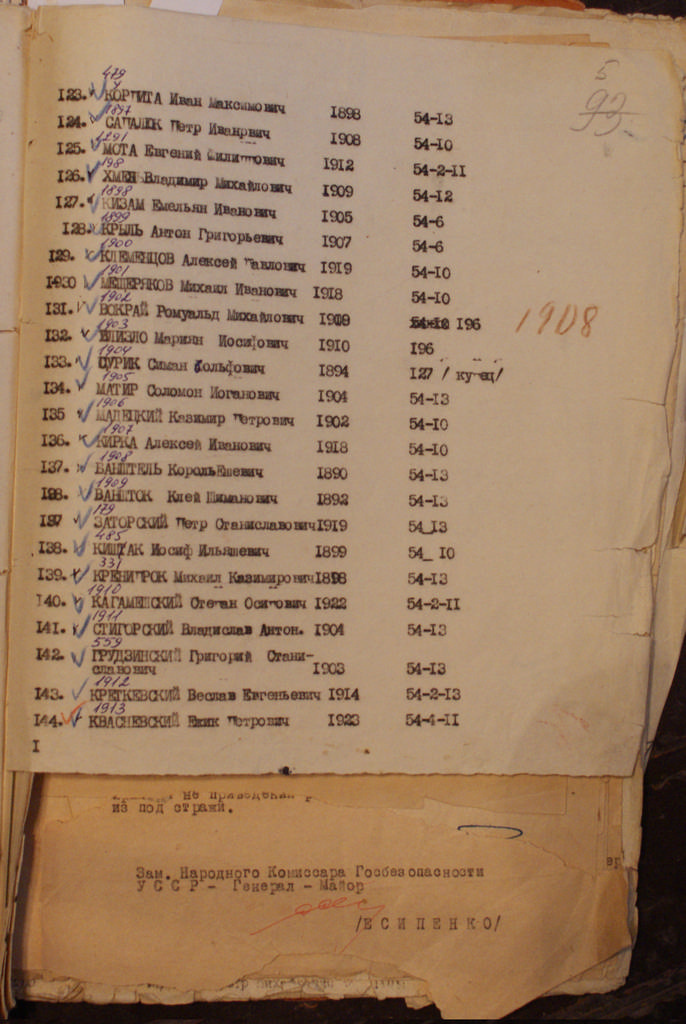 5
93.
479
123. КОРПИТА Иван Максимович 1898 54-13
1897
124. САПАЛЮК Петр Иванрвич 1908 54-10
1291
125. МОТА Евгений Филиппович 1912 54-2-11
198
126. ХМЕНЬ Владимир Михайлович 1909 54-12
1898
127. КИЗАМ Емельян Иванович 1905 54-6
1899
128. КРЫЛЬ Антон Григорьевич 1907 54-6
1900
129. КЛЕМЕНЦОВ Алексей Павлович 1919 54-10
1901
1430 МЕЩЕРЯКОВ Михаил Иванович 1918 54-10
1902
131. ВОКРАЙ Ромуальд Михайлович 1908 196 1908
1903
132. БЛИЗЛО Мариян Иосифович 1910 196
1904
133. ЦУРИК Симан Вольфович 1894 127 / купец/
1905
134. МАТИР Соломон Иоганович 1904 54-13
1906
135 МАЛЕЦКИЙ Казимир Петрович 1902 54-10
1907
136. КИРКА Алексей Иванович 1918 54-10
1908
137. БАНШТЕЛЬ КорольЕшевич 1890 54-13
1909
198. ВАНШТОК Клей Шиманович 1892 54-13
179
197 ЗАТОРСКИЙ Петр Станиславович1919 54_13
485
138. КИШТАК Иосиф Ильяшевич 1899 54_ 10
331
139. КРЕНИПРОК Михаил Казимирович1898 54-13
1910
140. КАГАМЕПСКИЙ Степан Осипович 1922 54-2-11
1911
141. СТИГОРСКИЙ Владислав Антон. 1904 54-13
559
142. ГРУДЗИНСКИЙ Григорий Стани-
славович 1903 54-13
1912
143. КРЕТКЕВСКИЙ Веслав Евгеньевич 1914 54-2-13
1913
144. КВАСНЕВСКИЙ Ежик Петрович 1923 54-4-11
I
не приведены
из под стражи.
Зам. Народного Комиссара Госбезопасности
У С С Р - Генерал - Майор
/Е С И П Е Н К О/